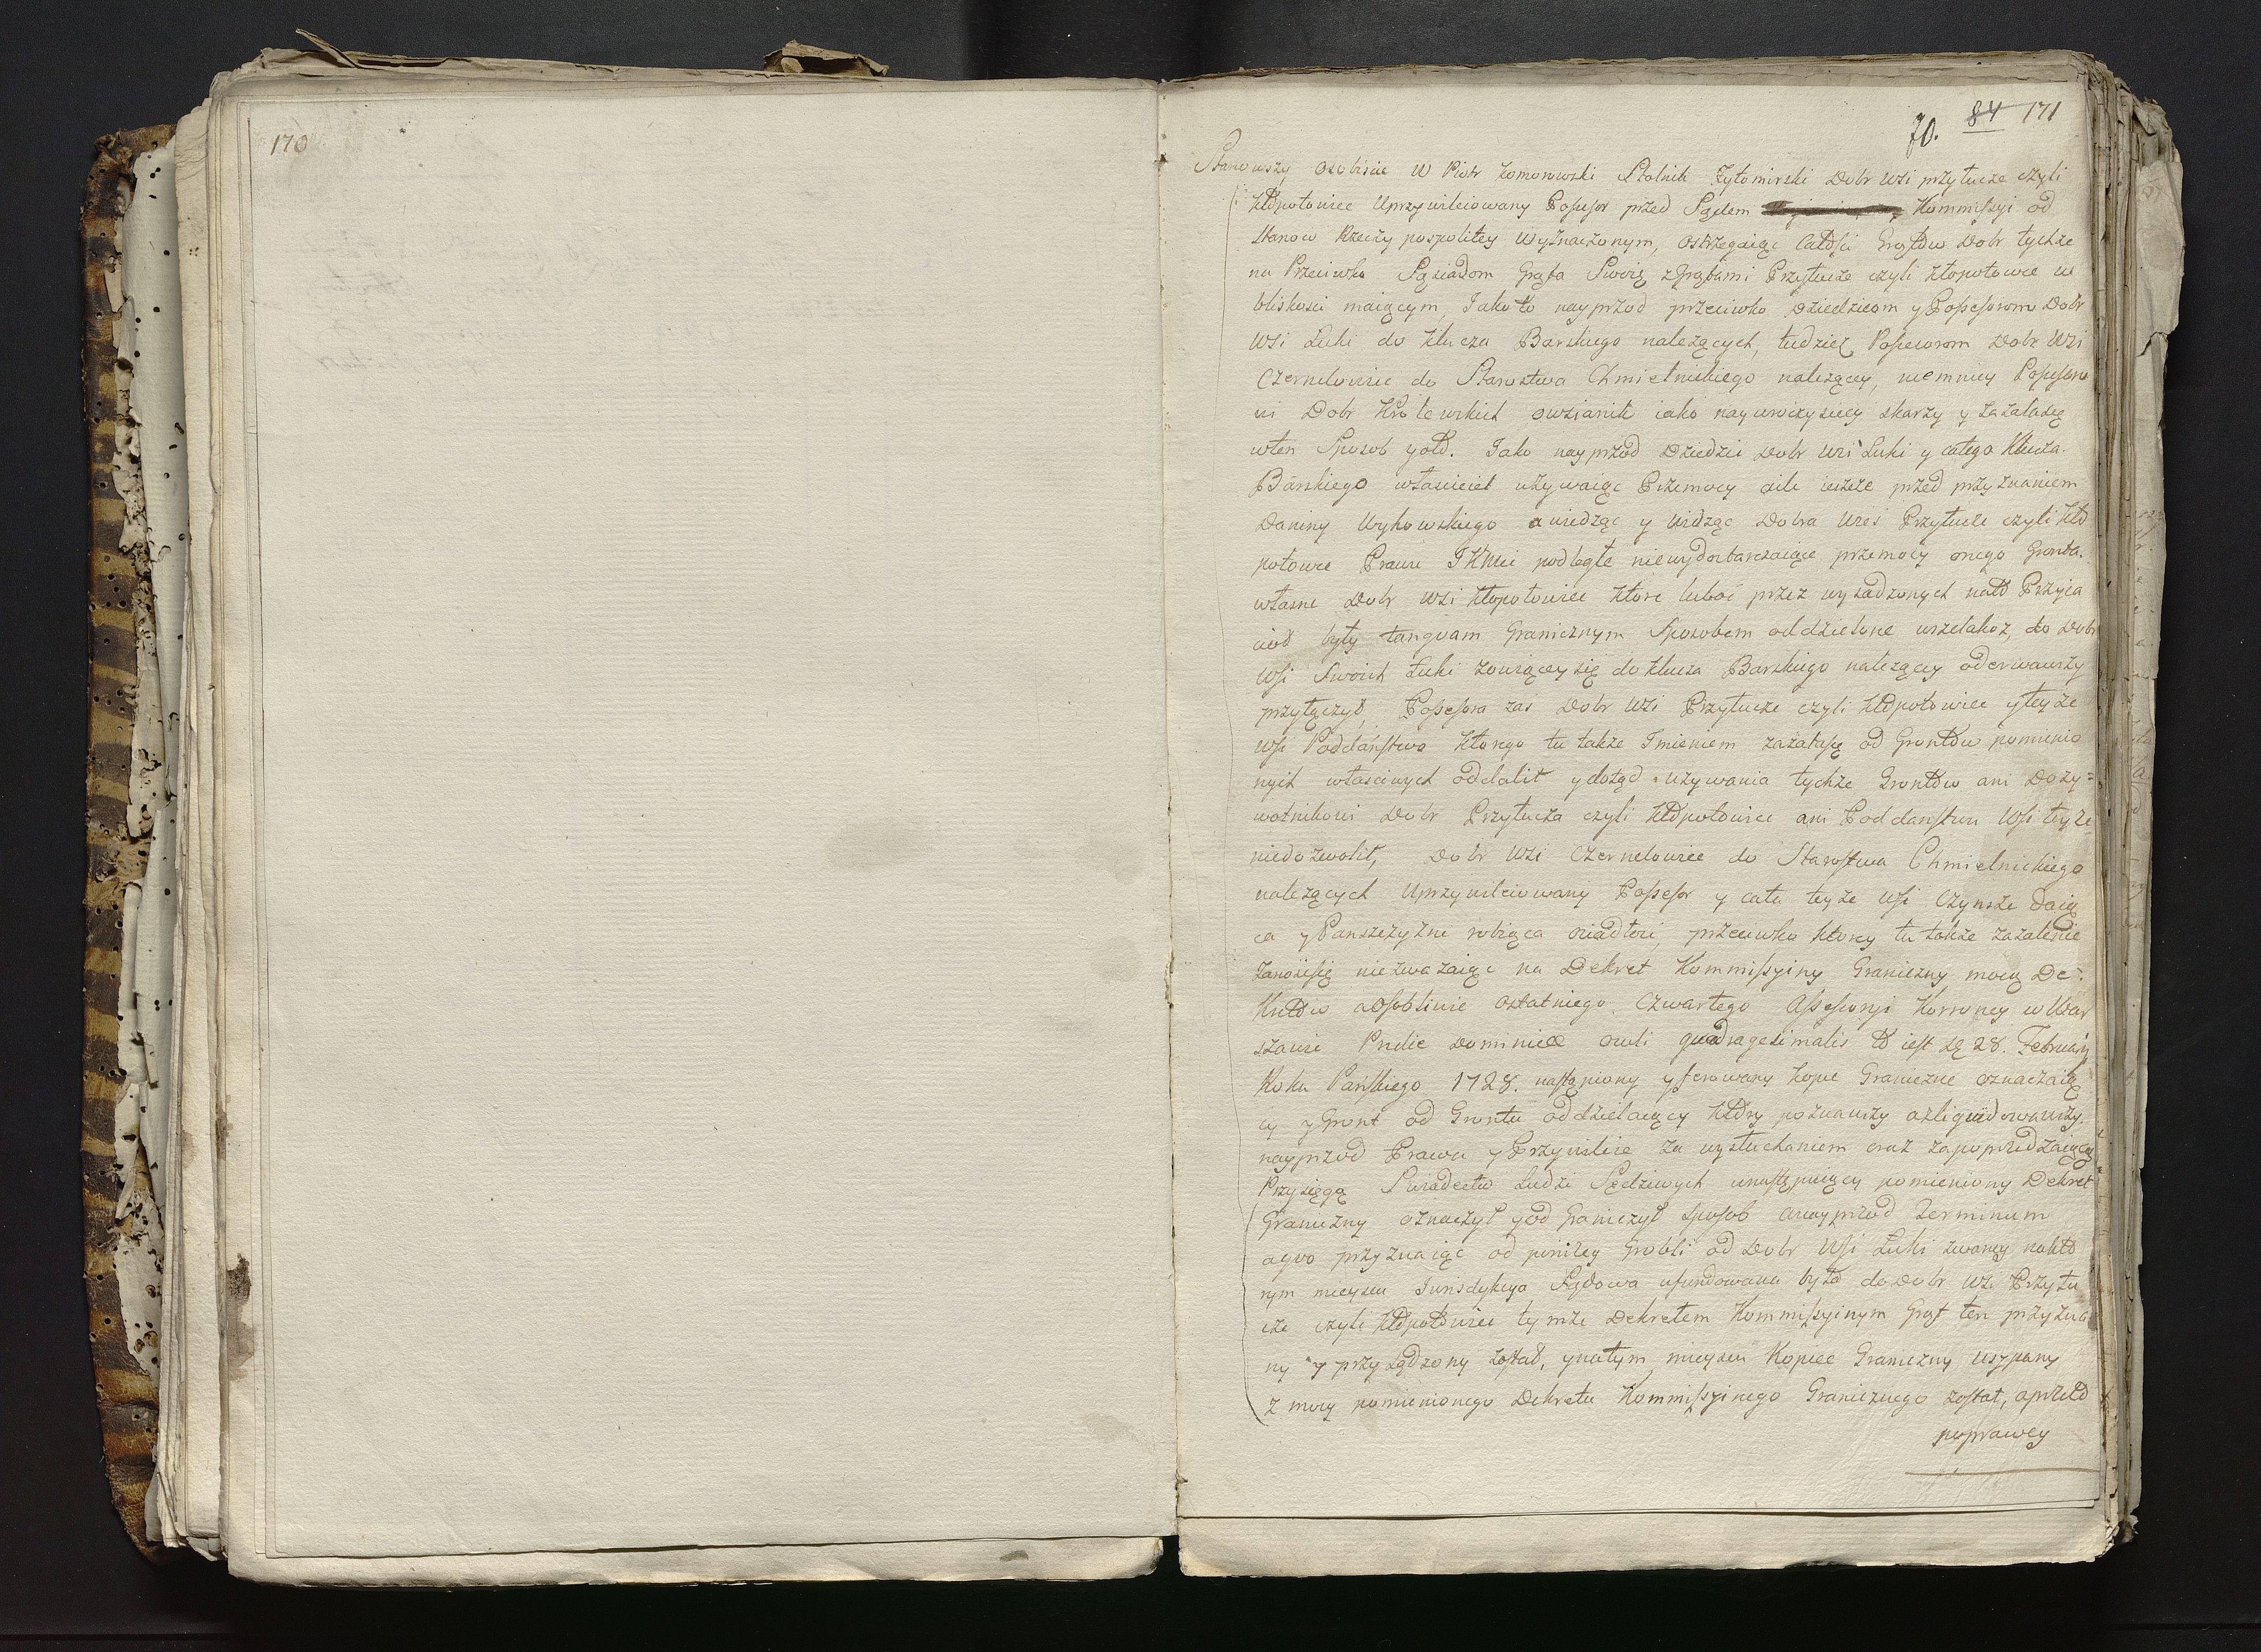 170
70. 84 171
Stanowszy osobiscie W Piotr Komorowski Stolnik Zytomirski Dobr wsi przyłucze czyli
Kłopotowiec Uprzywileiowany Possessor przed Sądem Kommissyi od
Stanow Rzeczy pospolitey wyznaczonym, ostrzegaiąc Całości Grontow Dobr tychze
na Przeciwko Sąsiadom Gronta Swoią z Grontami Przyłucze czyli Kłopotowce w
bliskosci maiącym, Jako to nayprzod przeciwko Dziedzicom y Possessorom Dobr
Wsi Łuki do Klucza Barskiego nalezących, tudziez Possessorom Dobr Wsi
Czernełowiec do Starostwa Chmielnickiego nalezącey, niemniey Possessoro
wi Dobr Krolewskich iako nayuroczysciey skarzy y zazalasię
wten Sposob yotto. Jako nayprzod Dziedzic Dobr Wsi Łuki y całego Klucza
Barskiego własciciel uzywaiąc Przemocy ile ieszcze przed przyznaniem
Daniny Wyhowskiego a wiedząc y widząc Dobra Wies Przyłucze czyli Kło
potowce Prawu podległe niewydostarczaiące przemocy onego Gronta
własne Dobr wsi Kłopotowiec ktore luboć przez wysadzonych natto Przyia
cioł były tanquam Granicznym Sposobem oddzielone wszelakoz, do Dobr
Wsi Swoich Łuki zowiącey się do Klucza Barskiego nalezący oderwawszy
przyłączył, Possessora zas Dobr Wsi Przyłucze czyli Kłopotowiec yteyze
Wsi Poddaństwo ktorego tu takze Imieniem zazalasię od Grontow pomienio
nych własciwych oddalił ydotąd uzywania tychze Grontow ani Dozy=
wotnikowi Dobr Przyłucza czyli Kłopotowiec ani Poddanstwu Wsi teyze
niedozwolił, Dobr Wsi Czernełowiec do Starostwa Chmielnickiego
nalezących Uprzywileiowany Possessor y cała teyze Wsi Czynsze daią
ca y Panszczyznę robiąca osiadłość, przeciwko ktorey tu takze zazalenie
zanosisię niezwazaiąc na Dekret Kommissyiny Graniczny mocą De=
kretow aosobliwie ostatniego Czwartego Assessoryi Koronney w War
szawie Pridie Dominicae Quadragesimalis to iest Dę 28. February
Roku Pańskiego 1728. nastąpiony yferowany kopce Graniczne oznaczaią
cy y Gront od Grontu oddzielaiący Ktory poznawszy azliquidowawszy
nayprzod Prawa y Przywileie za wysłuchaniem oraz zapoprzedzaiącą
Przysięgą Swiadectw Ludzi Sędziwych wnastępuiący pomieniony Dekret
Graniczny oznaczył yod Graniczył sposob anayprzod Terminum
aquo przyznaiąc od piniley Grobli od Dobr Wsi Łuki zwaney nakto
rym mieyscu Jurisdykcya Sądowa ufundowana była doDobr Wsi Przyłu
cze czyli Kłopotowiec tymze Dekretem Kommissyinym Gront ten przyzna
ny y przysądzony został, ynatym mieyscu Kopiec Graniczny usypany
z mocy pomienionego Dekretu Kommissyinego Granicznego został, aprzeto
poprawey